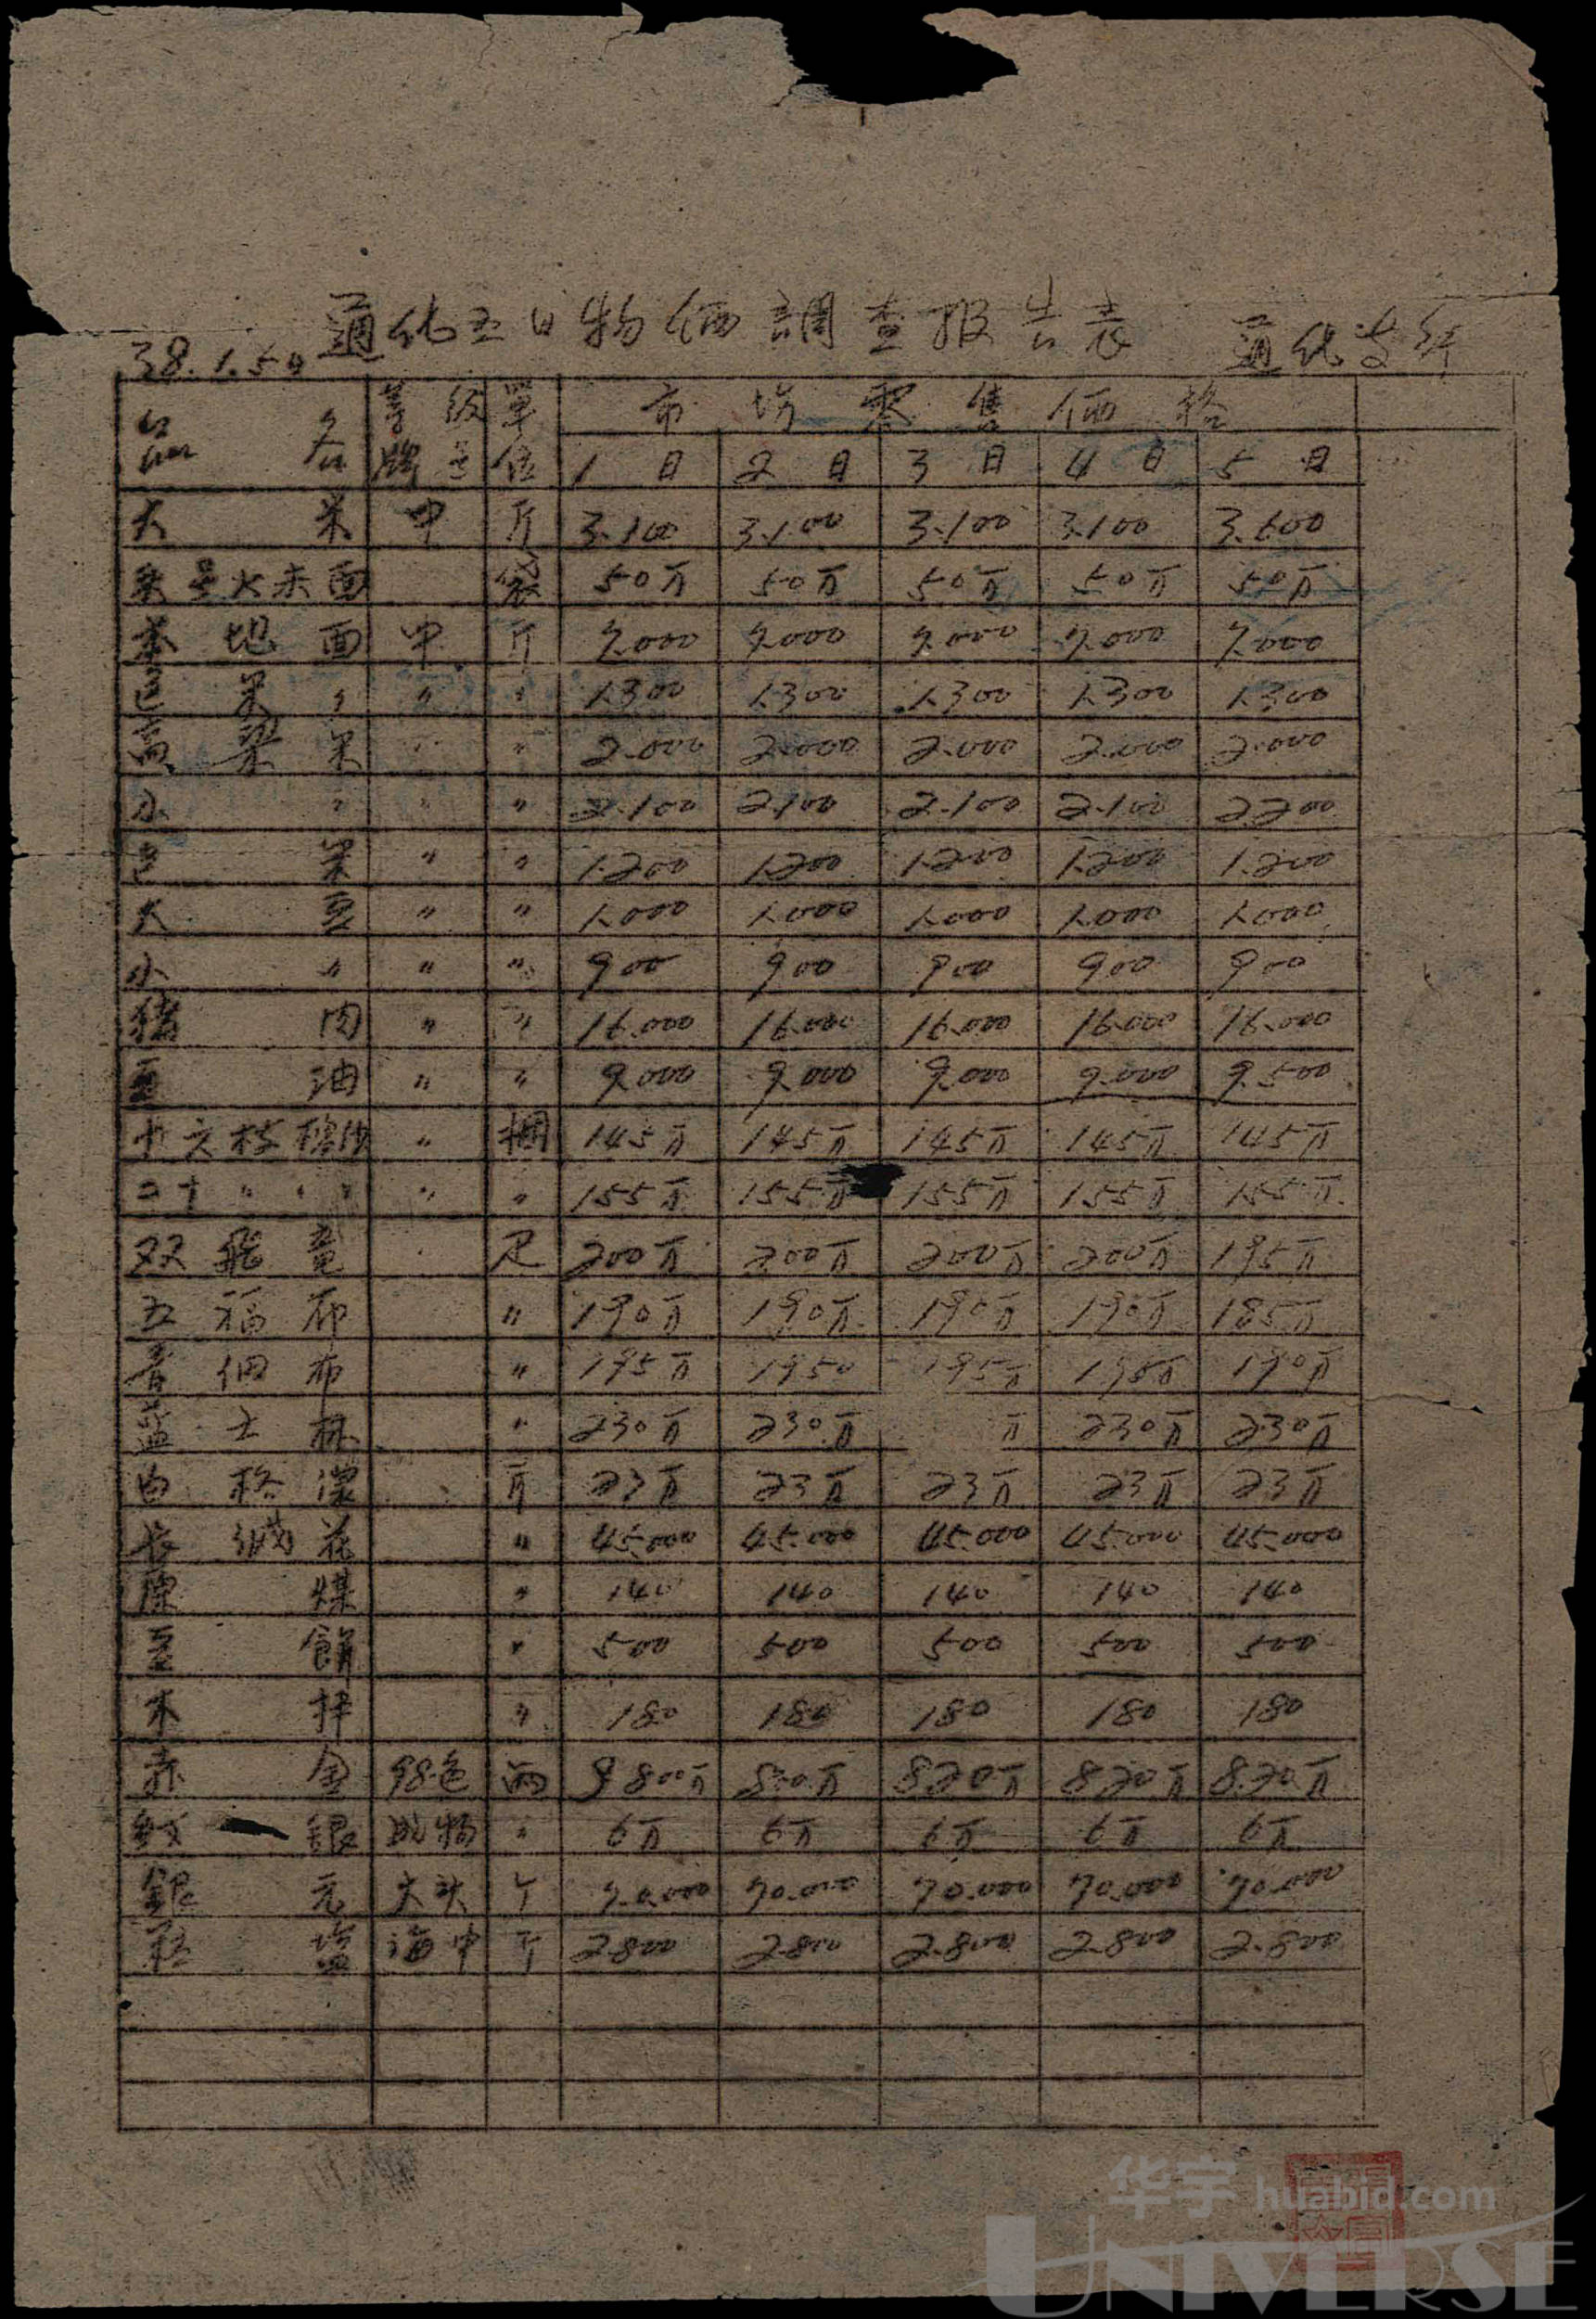 通化五日物価調查报告表
通化支行
38.1.5日
品名 等級牌号 單位 市場零售価格
1日 2日 3日 4日 5日
大米 中 斤 3.100 3.100 3.100 3.100 3.600
面 袋 50万 50万 50万 50万 50万
本地面 中 斤 7.000 7.000 7.000 7.000 7.000
包米〃 〃 〃 1.300 1.300 1.300 1.300 1.300
高粱米 〃 〃 2.000 2.000 2.000 2.000 2.000
小〃 〃 〃 2.100 2.100 2.100 2.100 2.200
包米 〃 〃 1.200 1.200 1.200 1.200 1.200
大豆 〃 〃 1.000 1.000 1.000 1.000 1.000
小〃 〃 〃 900 900 900 900 900
猪肉 〃 〃 16.000 16.000 16.000 16.000 16.000
豆油 〃 〃 9.000 9.000 9.000 9.000 9.500
十六枝棉纱 〃 捆 145万 145万 145万 145万 145万
二十〃〃〃 〃 〃 155万 155万 155万 155万 155万
双飛竜 尺 200万 200万 200万 200万 195万
五福布 〃 190万 190万 190万 190万 185万
青细布 〃 195万 1950 195万 195万 190万
蓝士林 〃 230万 230万 万 230万 230万
白 斤 23万 23万 23万 23万 23万
花 〃 45.000 45.000 45.000 45.000 45.000
原煤 〃 140 140 140 140 140
豆餅 〃 500 500 500 500 500
木拌 〃 180 180 180 180 180
赤金 98色 両 9.800万 820万 820万 820万 8.20万
紋銀 〃 6万 6万 6万 6万 6万
銀元 大头 个 70.000 70.000 70.000 70.000 70.000
盐 海中 斤 2.800 2.800 2.800 2.800 2.800
华宇 huabid.com
UNIVERSE